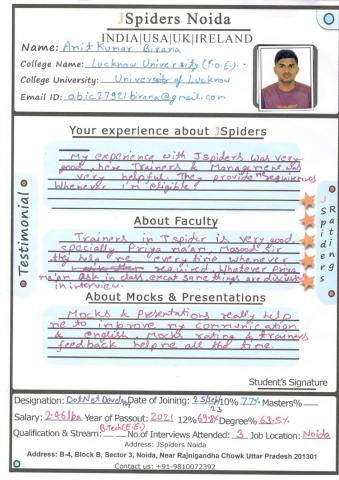 JSpiders Noida
INDIA|USA|UK|IRELAND
Name: Anit Kumar Birana
College Name: Lucknow University (F.O.E).
College University: University of Lucknow
Email ID: abic27921birana@gmail.com
Your experience about JSpiders
My experience with Jspiders was very
good, here Trainers & Management was
very helpful. They provide me requirements
Whenever I'm eligible.
About Faculty
Trainers in Jspider is very good.
specially Priya ma'am. Masood Sir
they help me every time whenever
required. Whatever Priya
ma'am ask in class exact same things are discuss
in interview.
About Mocks & Presentations
Mocks & Presentations really help
me to improve my communication
& english. Mocks rating & trainers
feedback help me all the time.
Testimonial
JSpiders
Ratings
Student's Signature
Designation: DotNet Developer Date of Joining: 25/Sep/23 10% 77% Masters%
Salary: 2.46lpa Year of Passout: 2021 12% 69.8% Degree% 63.5%
Qualification & Stream: B.Tech(E.E.) No.of Interviews Attended: 3 Job Location: Noida
Address: JSpiders Noida
Address: B-4, Block B, Sector 3, Noida, Near Rajnigandha Chowk Uttar Pradesh 201301
Contact us: +91-9810072392